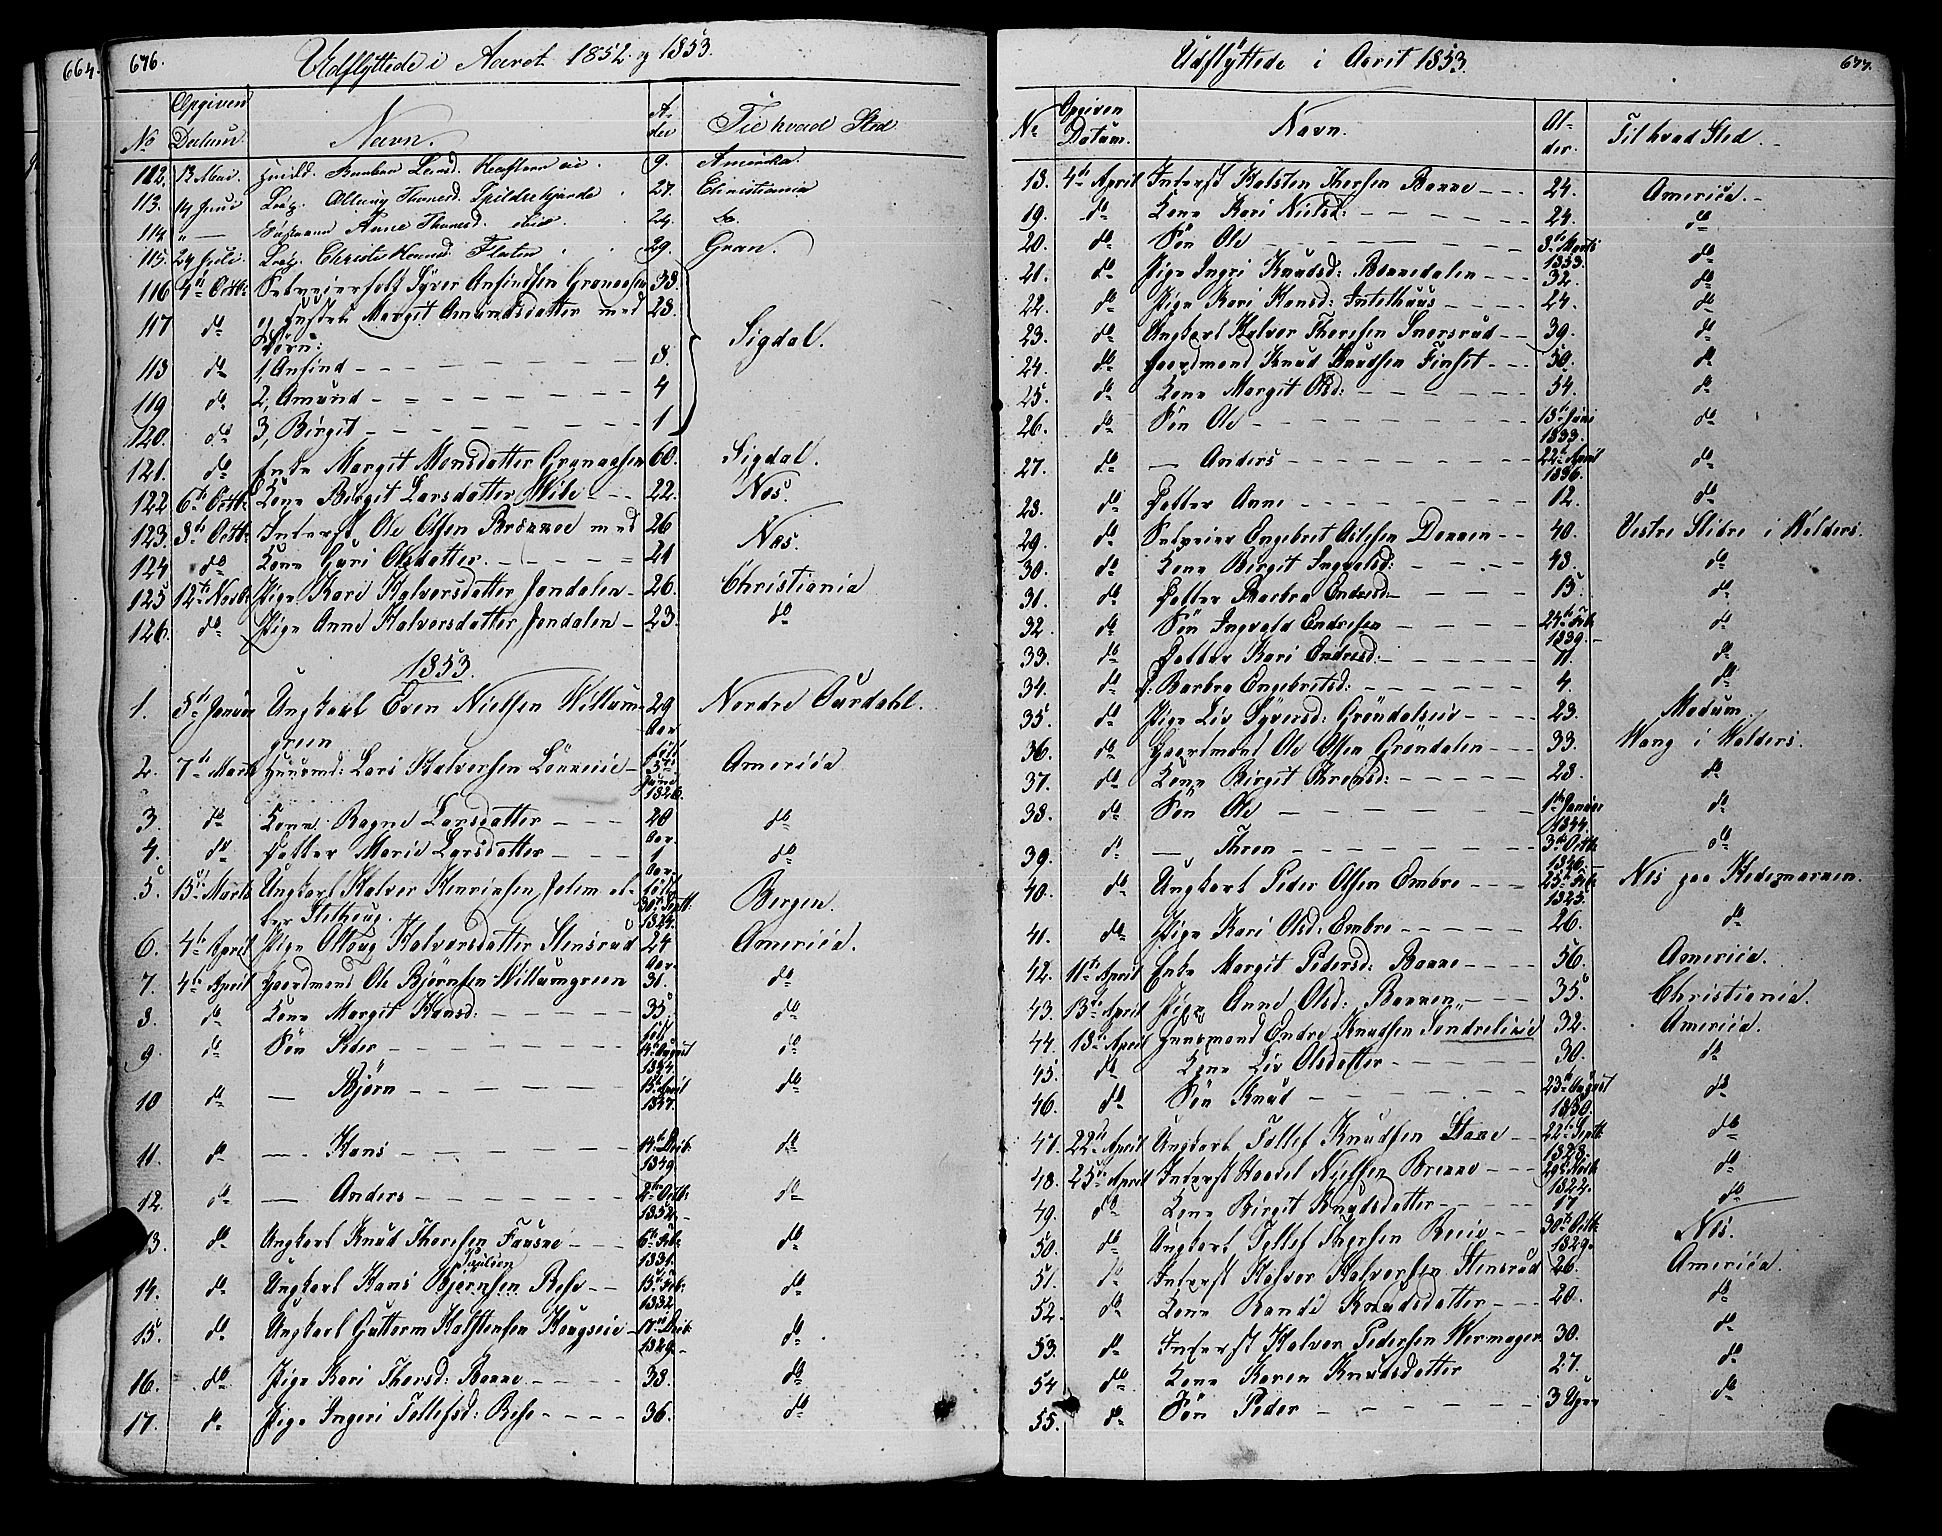 664.
676.
Udflyttede i Aaret 1852 og 1853.
No
Opgiven Datum.
Navn.
Alder
Til hvad Sted
112. 13 Mai. Barnbarn 9. Amerika.
113. 14 Juni Thoresd. 27. Christiania
114 " — Anne Thoresd. ibid. 24. do
115. 24 Juli. Christi 29. Gran.
116 4de Octbr Selveierfolk Syver Ansindsen Grønaasen 38.
117 do 2, Hustru Margit Amundsdatter med 28.
Børn:
118 do 1, Ansind - - - 8. Sigdal.
119 do 2, Amund - - - 4
120. do 3, Birgit - - - 1
121. do Enke Margit Monsdatter Grønaasen 60. Sigdal.
122 6te Octbr Kone Birgit Larsdatter 22. Næs.
123. 8de Octbr Inderst Ole Olsen med 26 Næs.
124 do Kone Guri Olsdatter. - - - 21
125 12te Novbr Pige Kari Halvorsdatter Jondalen - 26. Christiania
126. do Pige Anne Halvorsdatter Jondalen - 23. do
1853.
1. 5te Januar Ungkarl Even Nielsen Willum- 29 Nordre Aurdahl.
green Aar
2. 7de Marts Huusmd: Lars Halvorsen født 5te Juni 1826. America
3. do Kone Ragne Larsdatter - - - 20 Aar. do
4. do Datter Marie Larsdatter - - - 1 Aar. do
5. 15de Marts Ungkarl Halvor Henriksen født 30te Septb: 1824. Bergen.
6. 4de April Pige Halvorsdatter Stensrud 24 Aar. America.
7. 4de April Gaardmand Ole Bjørnsen Willumgreen 31. do
8. do Kone Margit Hansd: - - - 35. do
9 do Søn Peder - - - født August 1844. do
10 do — Bjørn - - - April 1847. do
11. do — Hans - - - 14de 1849. do
12. do — Anders - - - Octbr 1852. do
13. do Ungkarl Knud Thoresen - - - 6te Feb: 1831. do
Paulsen
14. do Ungkarl Hans Bjørnsen - - 15de Feb: 1832. do
15. do Ungkarl Guttorm Halstensen Haugseie - 17de 1829. do
16. do Pige Kari Thorsd: - - - 38. do
17. do Pige Ingeri Tollefsd: - - - 36. do
677.
Udflyttede i Aaret 1853.
No
Opgiven Datum.
Navn.
Alder.
Til hvad Sted.
18. 4de April Inderst Halsten Thorsen - - - 24. America.
19. do Kone Kari Nielsd: - - - 24. do
20. do Søn Ole - - - Marts 1853. do
21. do Pige Ingri Knudsd: - - - 32. do
22. do Pige Kari Hansd: - - - 24. do
23. do Ungkarl Halvor Thoresen - - 39. do
24. do Gaardmand Knud Knudsen Finset - - - 50. do
25. do Kone Margit Olsd: - - - 54. do
26. do Søn Ole - - - Juni 1833. do
27. do — Anders - - - 22de April 1836. do
28. do Datter Anne - - - 12. do
29. do Selveier Engebret - - 40. Vestre Slidre i Walders.
30. do Kone Birgit Ingvalsd: - - - 48. do
31. do Datter Barbra Endresd: - - - 15. do
32. do Søn Ingvald Endresen - - - Feb: 1839. do
33. do Datter Kari Endresd: - - - 11. do
34. do D: Barbra Engebretsd: - - - 4. do
35. do Pige Liv Syversd: Grøndalseie - - - 23. Modum.
36. do Gaardmand Ole Olsen Grøndalen - - - 33. Wang i Walders.
37. do Kone Birgit - - - 28. do
38. do Søn Ole - - - Januar 1844. do
39. do — - - - Octbr 1846. do
40. do Ungkarl Peder Olsen Embre - - - 25de Feb: 1825. Nes paa Hedemarken.
41. do Pige Kari Olsd: Embre - - - 26. do
42. 11te April Enke Margit Pedersd: - - - 56. America.
43. 13de April Pige Anne Olsd: - - - 35. Christiania.
44. 18de April Huusmand Endre Knudsen 32. America.
45. do Kone Liv Olsdatter - - - 30. do
46. do Søn Knud - - - 23de August 1850. do
47. 22de April Ungkarl Tollef Knudsen - - 22de Septb: 1828. do
48. 25de April Inderst Nielsen - - - 1822. do
49. do Kone Birgit Knudsdatter - - - 17 do
50. do Ungkarl Tollef Thorsen - - - 30te Octbr 1829. Nes.
51. do Inderst Halvor Halvorsen Stensrud 26. America.
52. do Kone Randi Knudsdatter - - - 20. do
53. do Inderst Halvor Pedersen Wermager 30. do
54 do Kone Karen Knudsdatter 27. do
55. do Søn Peder - - - 3 Uger do